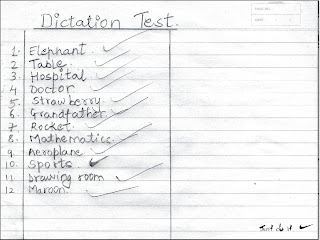 Dictation Test.
1. Elephant.
2 Table.
3 Hospital
4 Doctor
5. Strawberry.
6. Grandfather
7. Rocket.
8. Mathematics.
9. Aeroplane
10. Sports.
11 Drawing room
12 Maroon.